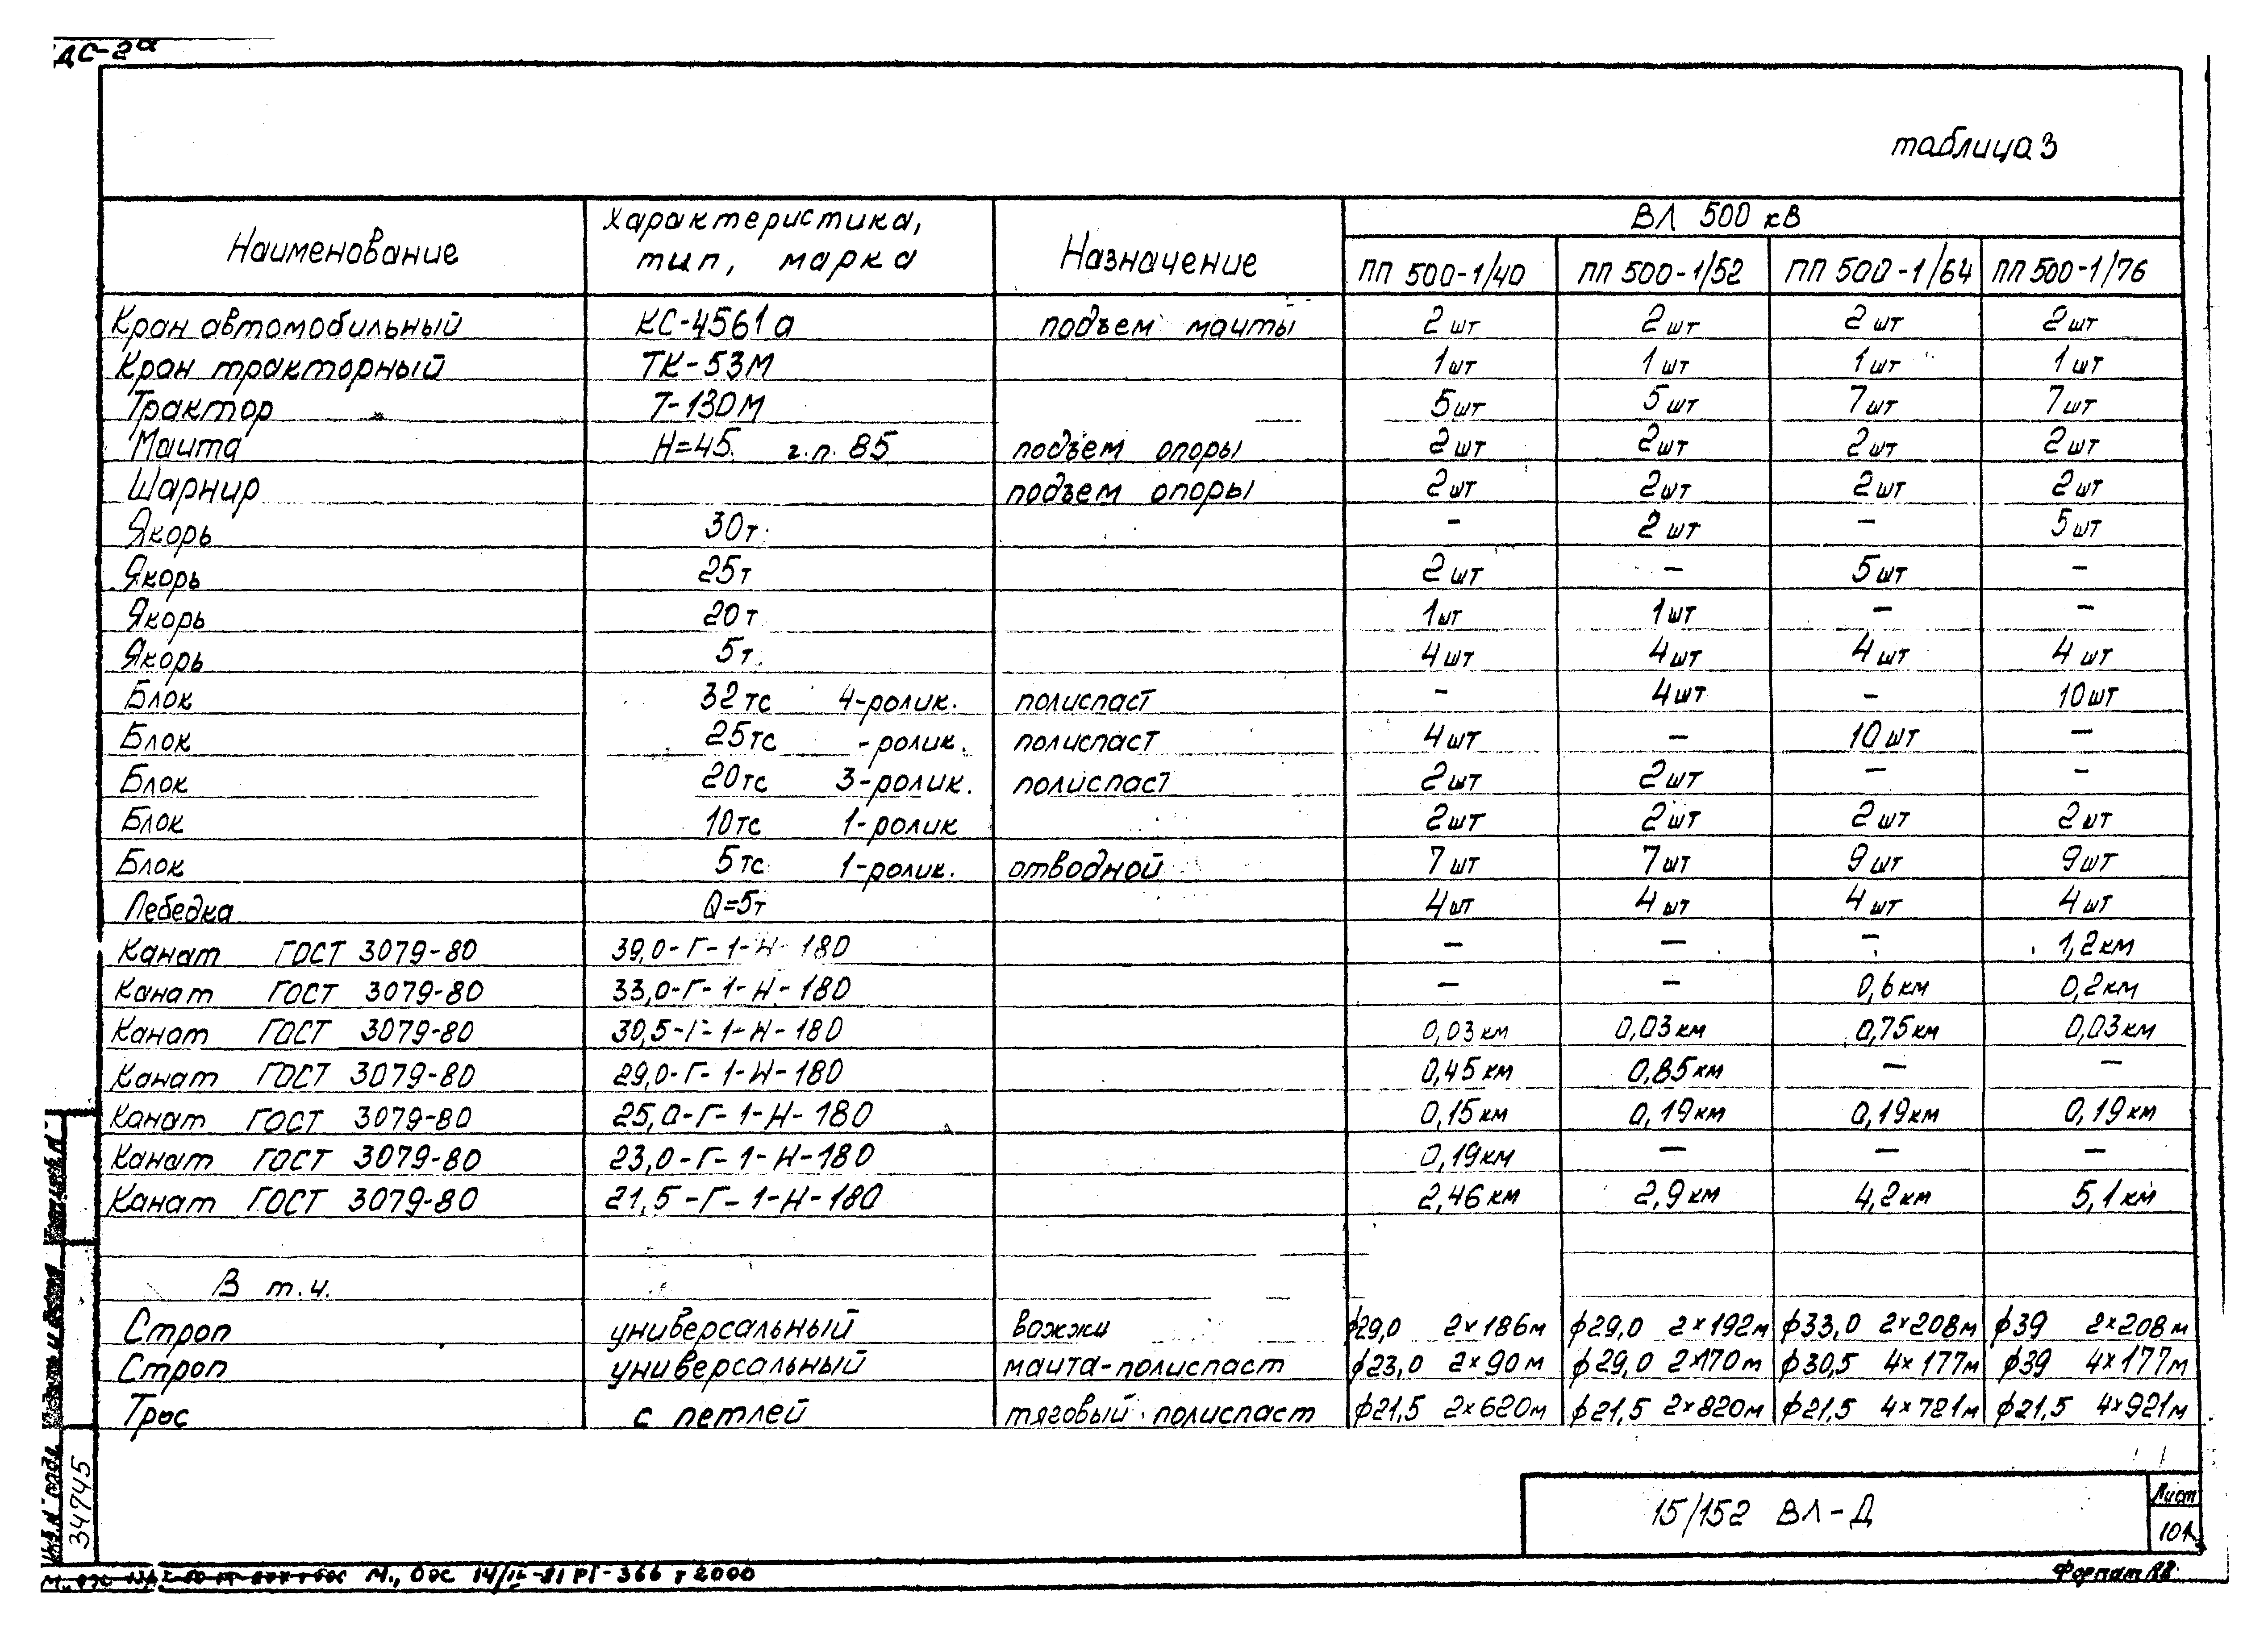 ДС-2а
таблица 3
Наименование | Характеристика, тип, марка | Назначение | ВЛ 500 кВ
ПП 500-1/40 | ПП 500-1/52 | ПП 500-1/64 | ПП 500-1/76
Кран автомобильный | КС-4561а | подъем мачты | 2 шт | 2 шт | 2 шт | 2 шт
Кран тракторный | ТК-53М | 1 шт | 1 шт | 1 шт | 1 шт
Трактор | Т-130М | 5 шт | 5 шт | 7 шт | 7 шт
Мачта | Н=45. г.п. 85 | подъем опоры | 2 шт | 2 шт | 2 шт | 2 шт
Шарнир | подъем опоры | 2 шт | 2 шт | 2 шт | 2 шт
Якорь | 30т. | – | 2 шт | – | 5 шт
Якорь | 25т | 2 шт | – | 5 шт | –
Якорь | 20т. | 1 шт | 1 шт | – | –
Якорь | 5т. | 4 шт | 4 шт | 4 шт | 4 шт
Блок | 32тс 4-ролик. | полиспаст | – | 4 шт | – | 10 шт
Блок | 25тс -ролик. | полиспаст | 4 шт | – | 10 шт | –
Блок | 20тс 3-ролик. | полиспаст | 2 шт | 2 шт | – | –
Блок | 10тс 1-ролик | 2 шт | 2 шт | 2 шт | 2 шт
Блок | 5тс 1-ролик. | отводной | 7 шт | 7 шт | 9 шт | 9 шт
Лебедка | Q=5т | 4 шт | 4 шт | 4 шт | 4 шт
Канат ГОСТ 3079-80 | 39,0-Г-1-Н-180 | – | – | – | 1,2 км
Канат ГОСТ 3079-80 | 33,0-Г-1-Н-180 | – | – | 0,6 км | 0,2 км
Канат ГОСТ 3079-80 | 30,5-Г-1-Н-180 | 0,03 км | 0,03 км | 0,75 км | 0,03 км
Канат ГОСТ 3079-80 | 29,0-Г-1-Н-180 | 0,45 км | 0,85 км | – | –
Канат ГОСТ 3079-80 | 25,0-Г-1-Н-180 | 0,15 км | 0,19 км | 0,19 км | 0,19 км
Канат ГОСТ 3079-80 | 23,0-Г-1-Н-180 | 0,19 км | – | – | –
Канат ГОСТ 3079-80 | 21,5-Г-1-Н-180 | 2,46 км | 2,9 км | 4,2 км | 5,1 км
В т.ч.
Строп | универсальный | вожжи | ϕ29,0 2×186м | ϕ29,0 2×192м | ϕ33,0 2×208м | ϕ39 2×208м
Строп | универсальный | мачта-полиспаст | ϕ23,0 2×90м | ϕ29,0 2×170м | ϕ30,5 4×177м | ϕ39 4×177м
Трос | с петлей | тяговый полиспаст | ϕ21,5 2×620м | ϕ21,5 2×820м | ϕ21,5 4×721м | ϕ21,5 4×921м
Инв.N подл.
34745
15/152 ВЛ-Д
Лист
101
М., Оос 14/IX-81 РГ-366 т 2000
Формат